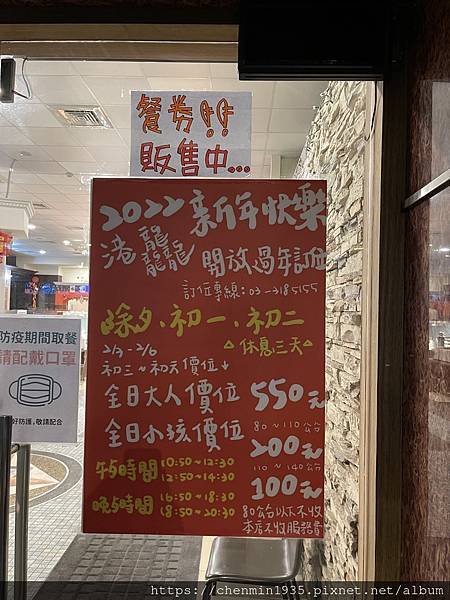 餐券!!
販售中...
2022 新年快樂
港龘 開放過年訂位
訂位專線：03-3185155
除夕、初一、初二
△休息三天△
2/3-2/6
初三~初六價位↓
全日大人價位 550元
80~110公分
全日小孩價位 200元
110~140公分
100元
午餐時間 10:50-12:30
12:50-14:30
晚餐時間 16:50-18:30
18:50-20:30
80公分以下不收
本店不收服務費
防疫期間取餐
請配戴口罩
好防護,敬請配合
https://chenmin1935.pixnet.net/album